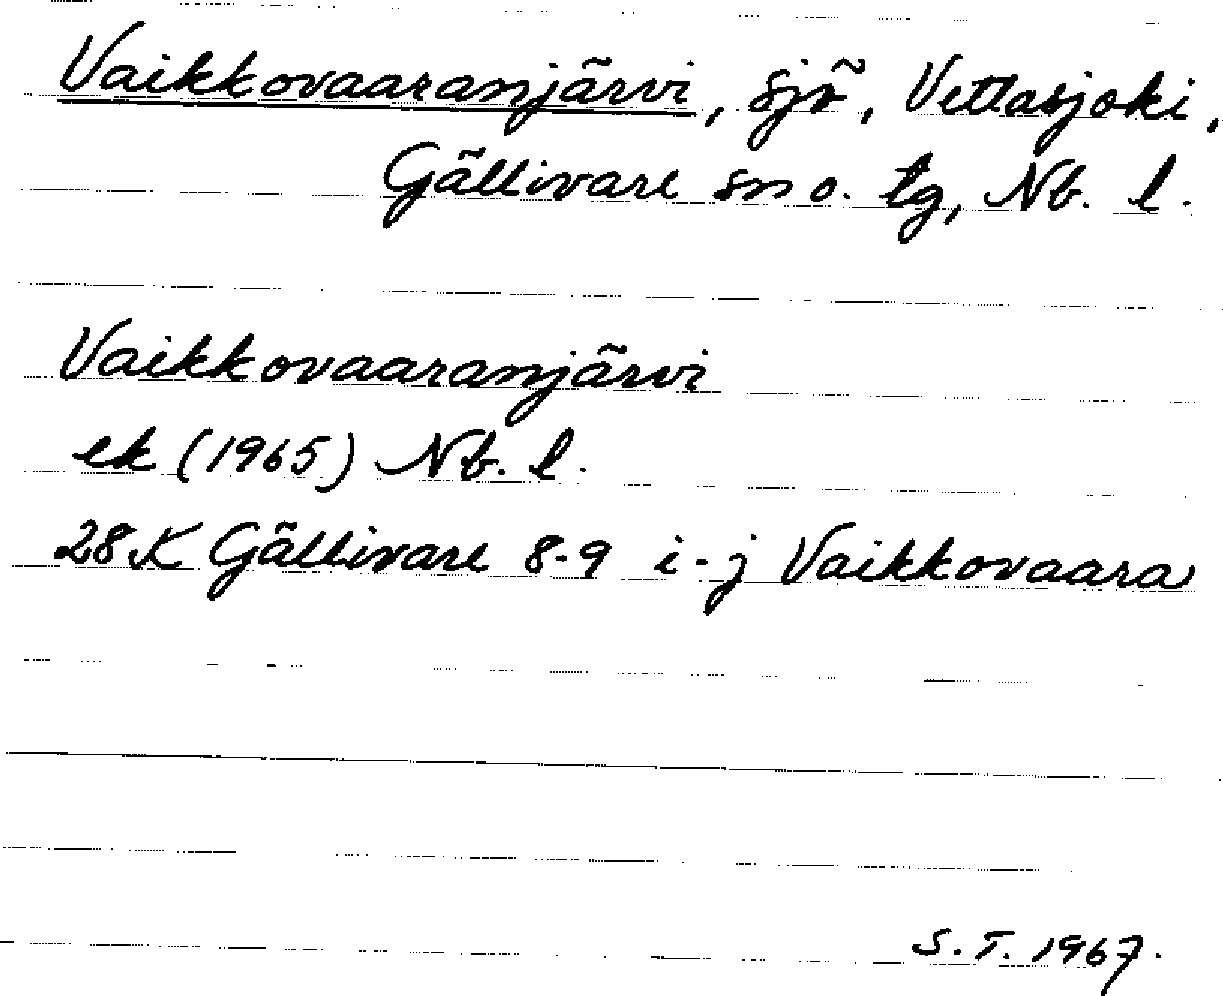 Vaikkovaaranjärvi, sjö, Vettasjoki,
Gällivare sn o. tg, Nb. l.
Vaikkovaaranjärvi
ek (1965) Nb. l.
28K Gällivare 8-9 i-j Vaikkovaara
S.T. 1967.